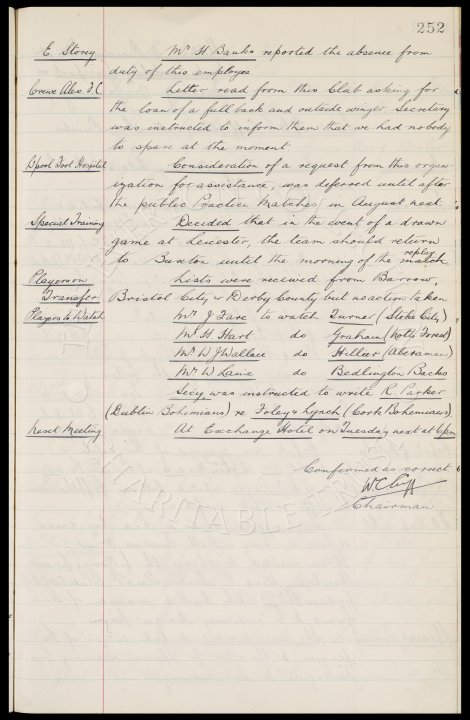 252
E. Storey Mr H Banks reported the absence from
duty of this employee
Crewe Alex. F.C. Letter read from this Club asking for
the loan of a full back and outside winger. Secretary
was instructed to inform them that we had nobody
to spare at the moment.
L'pool Foot Hospital Consideration of a request from this organ-
ization for assistance, was deferred until after
the public Practice Matches in August next.
Special Training Decided that in the event of a drawn
game at Leicester, the team should return
to Buxton until the morning of the match replay
Players on Lists were received from Barrow,
Transfer Bristol City, & Derby County but no action taken
Players to Watch Mr J Fare to watch Turner (Stoke City)
Mr H Hart do Graham (Notts Forest)
Mr W J Wallace do Hillier (Aberaman)
Mr W Lane do Bedlington Backs
Secy was instructed to write R Parker
(Dublin Bohemians) re Foley & Lynch (Cork Bohemians)
Next Meeting At Exchange Hotel on Tuesday next at 6 pm
Confirmed as correct
W. C. Cuff
Chairman
CHARITABLE TRUST